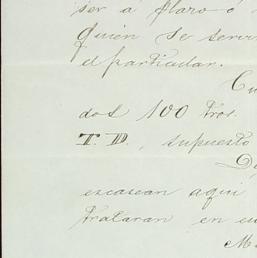 ser á Plaro ó
Quien se servi
el particular.
Cu
dos 100 tros.
T. D., supuesto
De
escasean aqui
trataran en eu
Ma